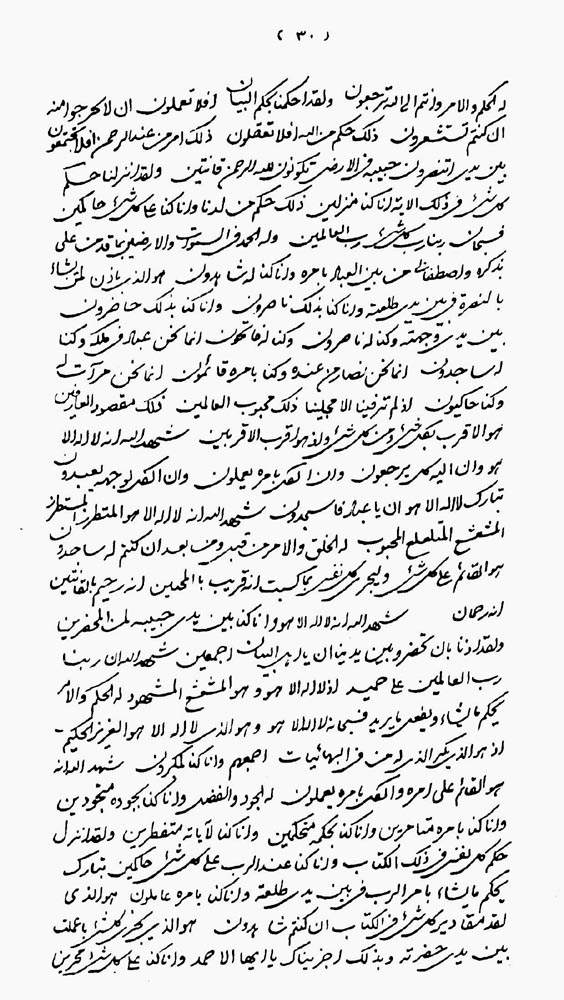 ( ٣٠ )
له الحكم والامر وانتم الى الله ترجعون ولقد احكمنا بحكم البيان افلا تعملون ان لا تخرجوا منه
ان كنتم تستشعرون ذلك حكم من الله افلا تعقلون ذلك امر من عند الرحمن افلا
بين يدى حبيبه فى الارض تكونون لله الرحمن قانتين ولقد انزلنا حكم
كل شئ فى ذلك الاية انا كنا منزلين ذلك حكم من لدنا وانا كنا على كل شئ حاكمين
فسبحان ربنا رب كل شئ رب العالمين وله الحمد فى السموات والارضين بما قد من على
بذكره واصطفانى من بين العباد بامره وانا كنا له شاهدون هو الذى ياذن لمن يشاء
بالنصرة فى بين يدى طلعته وانا كنا بذلك ناصرون وانا كنا بذلك حاضرون
بين يدى وجهته وكنا له ناصرون وكنا له انما نحن عباد فى ملكه وكنا
له ساجدون انما نحن نصار من عنده وكنا بامره قائمون انما نحن مرآت له
وكنا حاكيون اذ لم تر فينا الا مجلينا ذلك محبوب العالمين ذلك مقصود العارفين
هو الاقرب بكل شئ ومن كل شئ ولذ هو اقرب الاقربين شهد الله انه لا اله الا
هو وان اليه كل يرجعون وان الكل بامره يعملون وان الكل لوجهه يعبدون
تبارك لا اله الا هو ان يا عباد فاسجدون شهد الله انه لا اله الا هو المتطرز المستطرز
المشعشع المتلعلع المحبوب له الخلق والامر من قبل ومن بعد ان كنتم له ساجدون
هو القائم على كل شئ وليجزى كل نفس بما كسبت انه قريب بالمحبين انه رحيم بالقانتين
انه رحمان شهد الله انه لا اله الا هو وانا كنا بين يدى حبيبه لمن المحضرين
ولقد اذنا بان تحضروا بين يدينا ان يا اهل البيان اجمعين شهد الله ان ربنا
رب العالمين على حميد اذ لا اله الا هو وهو المشعشع المشهود له الحكم والامر
يحكم مايشاء ويفعل مايريد فسبحانه لا اله الا هو وهو الذى لا اله الا هو العزيز الحكيم
اذ هو الذى الذى له من فى البهائيات اجمعهم وانا كنا شهد الله انه
هو القائم على امره والكل بامره يعملون له الجود والفضل وانا كنا بجوده متجودين
وانا كنا بامره متامرين وانا كنا بحكمه متحكمين وانا كنا لآياته متفطرين ولقد انزل
حكم كل نفس فى ذلك الكتاب وانا كنا عند الرب على كل شئ حاكمين تبارك
يحكم مايشاء بامر الرب فى بين يدى طلعته وانا كنا بامره عاملون هو الذى
لقد مقادير كل شئ فى الكتاب ان كنتم شاهدون هو الذى يجزى كل شئ بما عملت
بين يدى حضرته وبذلك اجزيناك يا ايها الاحمد وانا كنا على كل شئ مجزين